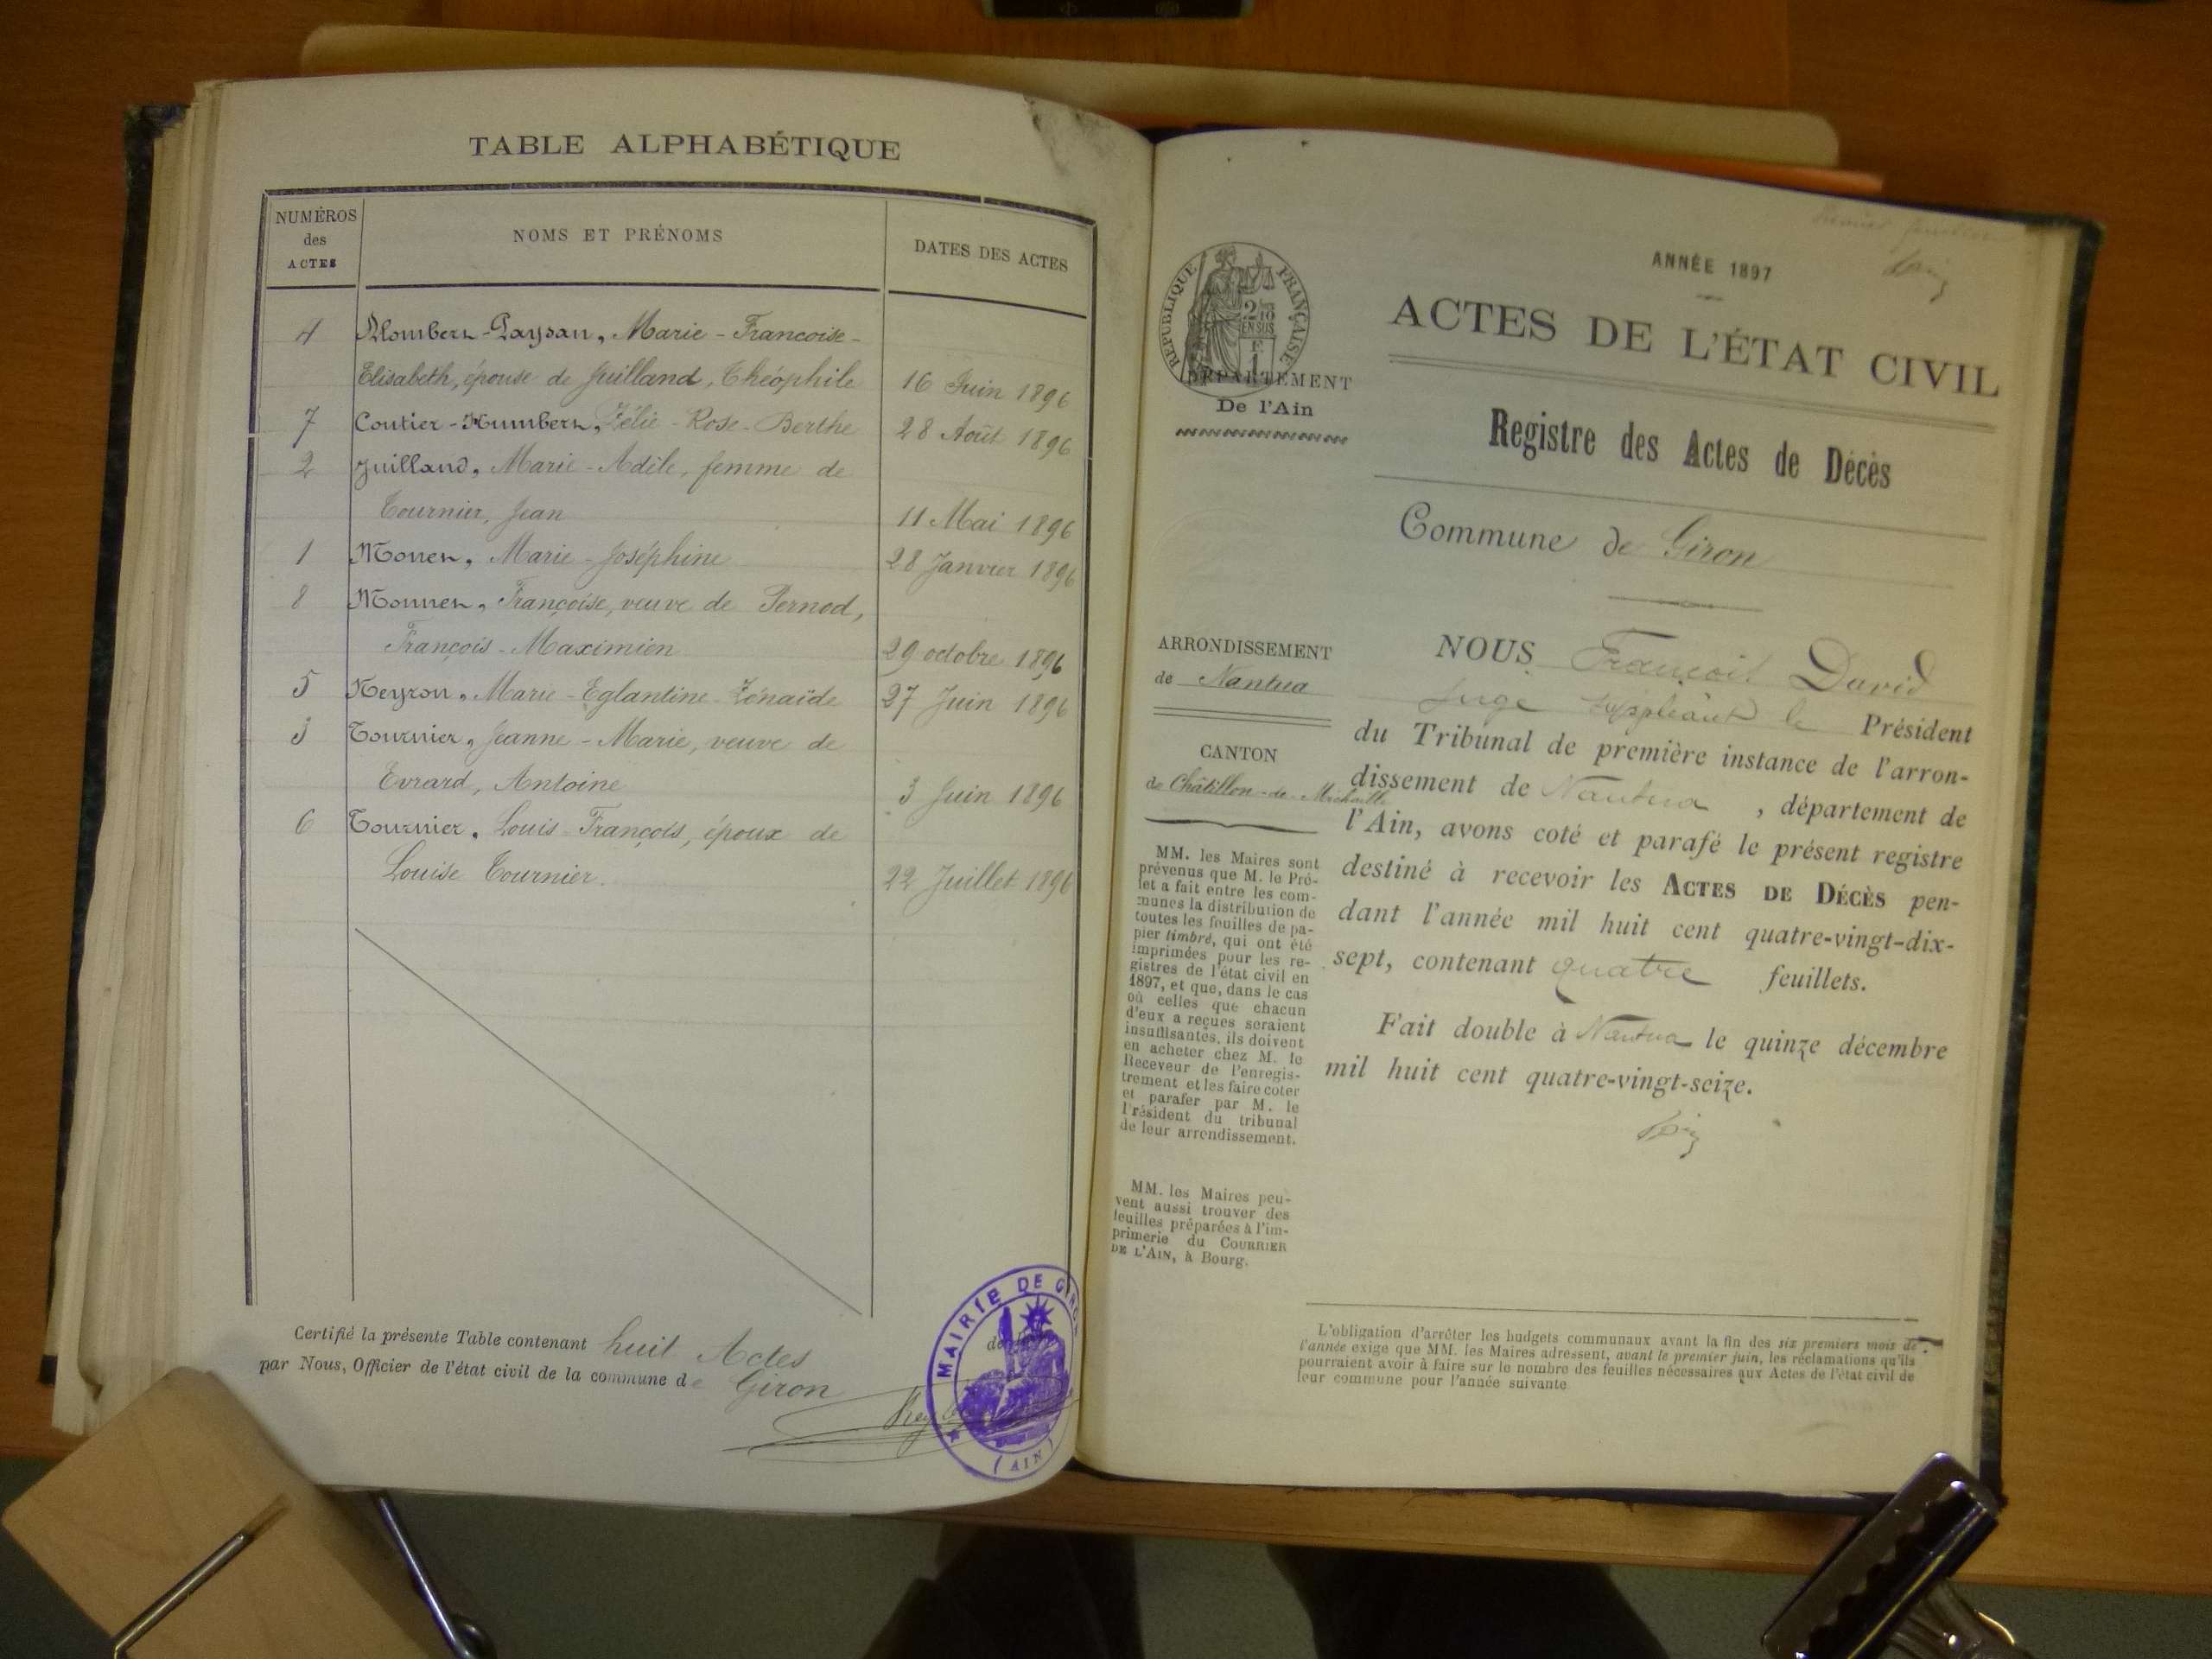 TABLE ALPHABÉTIQUE
NUMÉROS
des
ACTES
NOMS ET PRÉNOMS
DATES DES ACTES
4 Blombert-Paysan, Marie-Francoise-
Elisabeth, épouse de Juilland, Théophile 16 Juin 1896
7 Coutier-Humbert, Zélie-Rose-Berthe 28 Août 1896
2 Juilland, Marie-Adèle, femme de
Tournier, Jean 11 Mai 1896
1 Monet, Marie-Joséphine 28 Janvier 1896
8 Monnet, Françoise, veuve de Pernod,
François-Maximien 29 octobre 1896
5 Neyron, Marie-Eglantine Zénaïde 27 Juin 1896
3 Tournier, Jeanne-Marie, veuve de
Evrard, Antoine 3 Juin 1896
6 Tournier, Louis François, époux de
Louise Tournier. 22 Juillet 1896
Certifié la présente Table contenant huit Actes
par Nous, Officier de l'état civil de la commune de Giron
MAIRIE DE GIRON
(AIN)
ANNÉE 1897
RÉPUBLIQUE FRANÇAISE
2/10
EN SUS
F.
1
ACTES DE L'ÉTAT CIVIL
DÉPARTEMENT
De l'Ain
Registre des Actes de Décès
Commune de Giron
ARRONDISSEMENT
de Nantua
CANTON
de Châtillon-de-Michaille
MM. les Maires sont
prévenus que M. le Pré-
fet a fait entre les com-
munes la distribution de
toutes les feuilles de pa-
pier timbré, qui ont été
imprimées pour les re-
gistres de l'état civil en
1897, et que, dans le cas
où celles que chacun
d'eux a reçues seraient
insuffisantes, ils doivent
en acheter chez M. le
Receveur de l'enregis-
trement et les faire coter
et parafer par M. le
Président du tribunal
de leur arrondissement.
MM. les Maires peu-
vent aussi trouver des
feuilles préparées à l'im-
primerie du COURRIER
DE L'AIN, à Bourg.
NOUS François David
Juge suppléant le Président
du Tribunal de première instance de l'arron-
dissement de Nantua, département de
l'Ain, avons coté et parafé le présent registre
destiné à recevoir les ACTES DE DÉCÈS pen-
dant l'année mil huit cent quatre-vingt-dix-
sept, contenant quatre feuillets.
Fait double à Nantua le quinze décembre
mil huit cent quatre-vingt-seize.
L'obligation d'arrêter les budgets communaux avant la fin des six premiers mois de
l'année exige que MM. les Maires adressent, avant le premier juin, les réclamations qu'ils
pourraient avoir à faire sur le nombre des feuilles nécessaires aux Actes de l'état civil de
leur commune pour l'année suivante